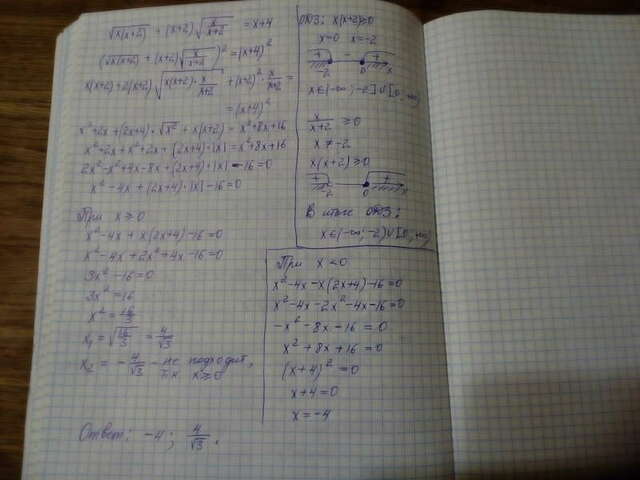 √(x(x+2)) + (x+2)√(x/(x+2)) = x+4
(√(x(x+2)) + (x+2)√(x/(x+2)))² = (x+4)²
x(x+2)+2(x+2)√(x(x+2)·x/(x+2)) + (x+2)²·x/(x+2) =
= (x+4)²
x²+2x+(2x+4)·√x² + x(x+2) = x²+8x+16
x²+2x+x²+2x+(2x+4)·|x| = x²+8x+16
2x²-x²+4x-8x+(2x+4)·|x| -16=0
x²-4x+(2x+4)·|x|-16=0
При x ≥ 0
x²-4x+x(2x+4)-16=0
x²-4x+2x²+4x-16=0
3x²-16=0
3x²=16
x²=16/3
x₁=√(16/3) = 4/√3
x₂ = -4/√3 - не подходит,
т.к x≥0
Ответ: -4; 4/√3.
ОДЗ: x(x+2)≥0
x=0 x=-2
+ - +
-2 0 x
x∈(-∞;-2]∪[0;+∞)
x/(x+2) ≥0
x ≠ -2
x(x+2)≥0
+ - +
-2 0 x
В итоге ОДЗ:
x∈(-∞;-2)∪[0;+∞)
При x<0
x²-4x-x(2x+4)-16=0
x²-4x-2x²-4x-16=0
-x²-8x-16=0
x²+8x+16=0
(x+4)²=0
x+4=0
x=-4